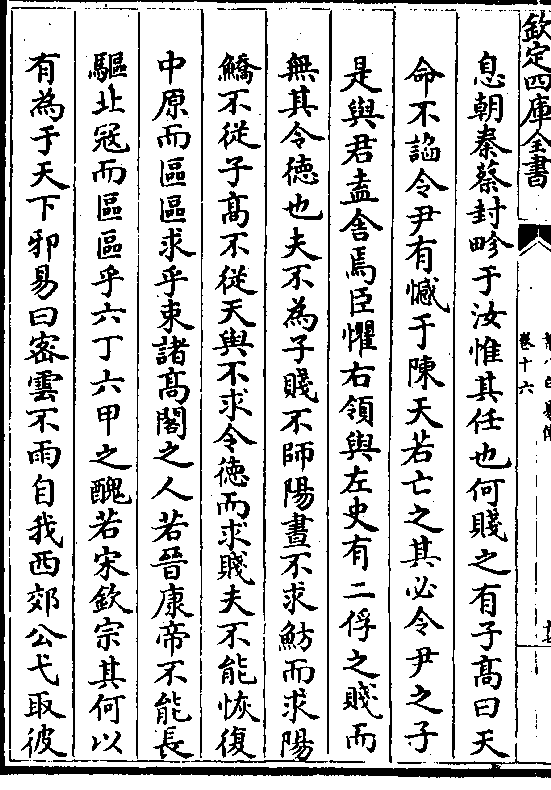 欽定四庫全書
卷十六
息朝秦蔡封畛于汝惟其任也何賤之有子髙曰天
命不謟令尹有憾于陳天若亡之其必令尹之子
是與君盍舎焉臣懼右領與左史有二俘之賤而
無其令徳也夫不為子賤不師陽晝不求魴而求陽
鱎不從子髙不從天與不求令徳而求賤夫不能恢復
中原而區區求乎束諸髙閣之人若晉康帝不能長
驅北冦而區區乎六丁六甲之醜若宋欽宗其何以
有為于天下邪易曰宻雲不雨自我西郊公弋取彼